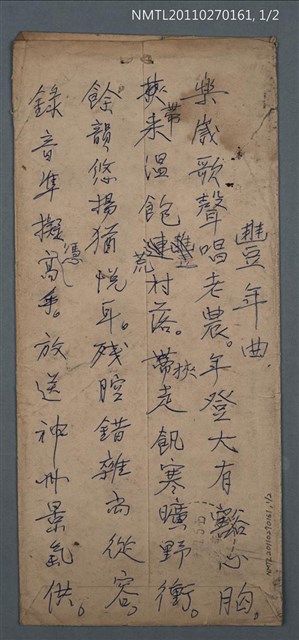 NMTL20110270161, 1/2
豐年曲.
樂歲歌聲唱老農。年登大有豁心胸。
挾帶来溫飽連豐荒村落。帶挾走飢寒曠野衝。
餘韻悠揚猶悅耳。殘腔錯雜尚從容。
錄音準擬憑高手。放送神州景氣供。
NMTL20110270161, 1/2